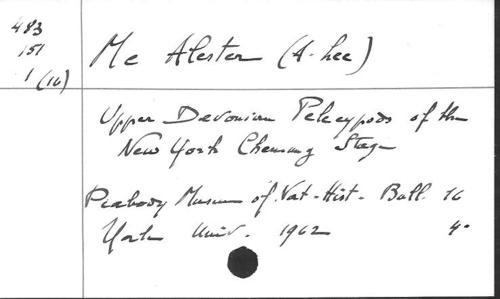 483
151
1 (16)
Mc Alester (A. Lee)
Upper Devonian Pelecypods of the
New York Chemung Stage
Peabody Museum of. Nat - Hist - Bull. 16
Yale Univ. 1962 4°